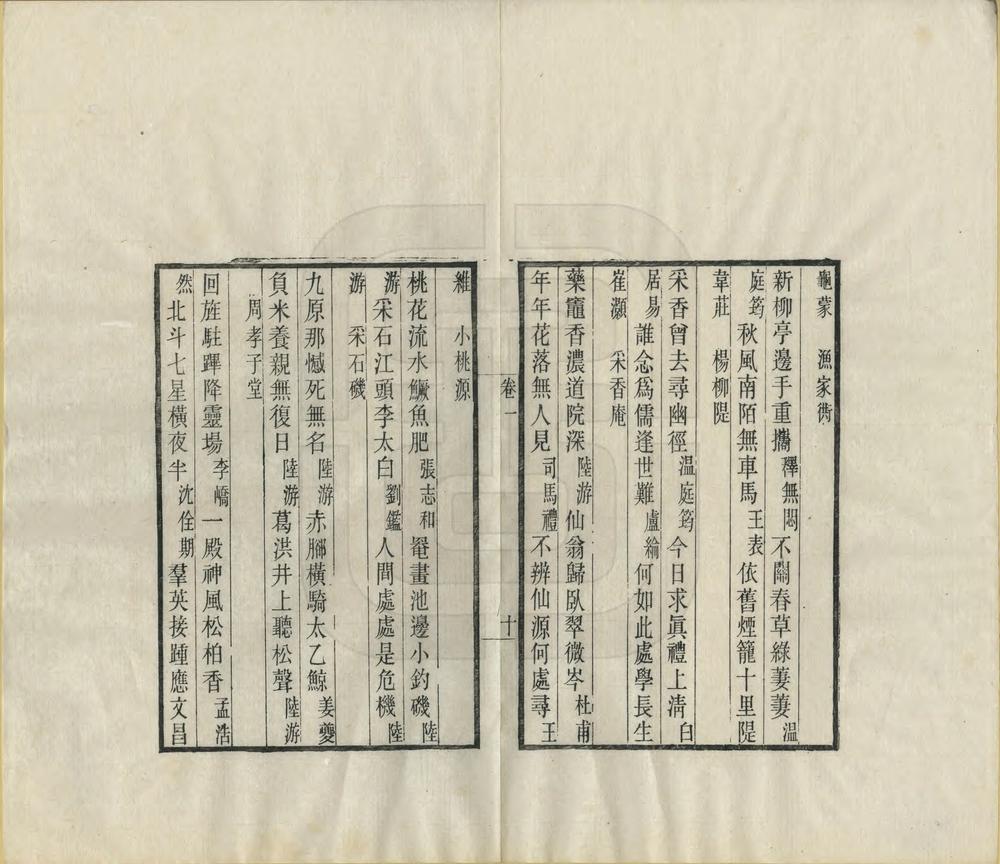 龜蒙　漁家衖
新柳亭邊手重攜釋無悶不關春草綠萋萋溫
庭筠秋風南陌無車馬王表依舊煙籠十里隄
韋莊　楊柳隄
采香曾去尋幽徑溫庭筠今日求眞禮上淸白
居易誰念爲儒逢世難盧綸何如此處學長生
崔灝　采香庵
藥竈香濃道院深陸游仙翁歸臥翠微岑杜甫
年年花落無人見司馬禮不辨仙源何處尋王
卷一　十
維　小桃源
桃花流水鱖魚肥張志和罨畫池邊小釣磯陸
游采石江頭李太白劉鑑人間處處是危機陸
游　采石磯
九原那憾死無名陸游赤腳橫騎太乙鯨姜夔
負米養親無復日陸游葛洪井上聽松聲陸游
周孝子堂
回旌駐蹕降靈場李嶠一殿神風松柏香孟浩
然北斗七星橫夜半沈佺期羣英接踵應文昌